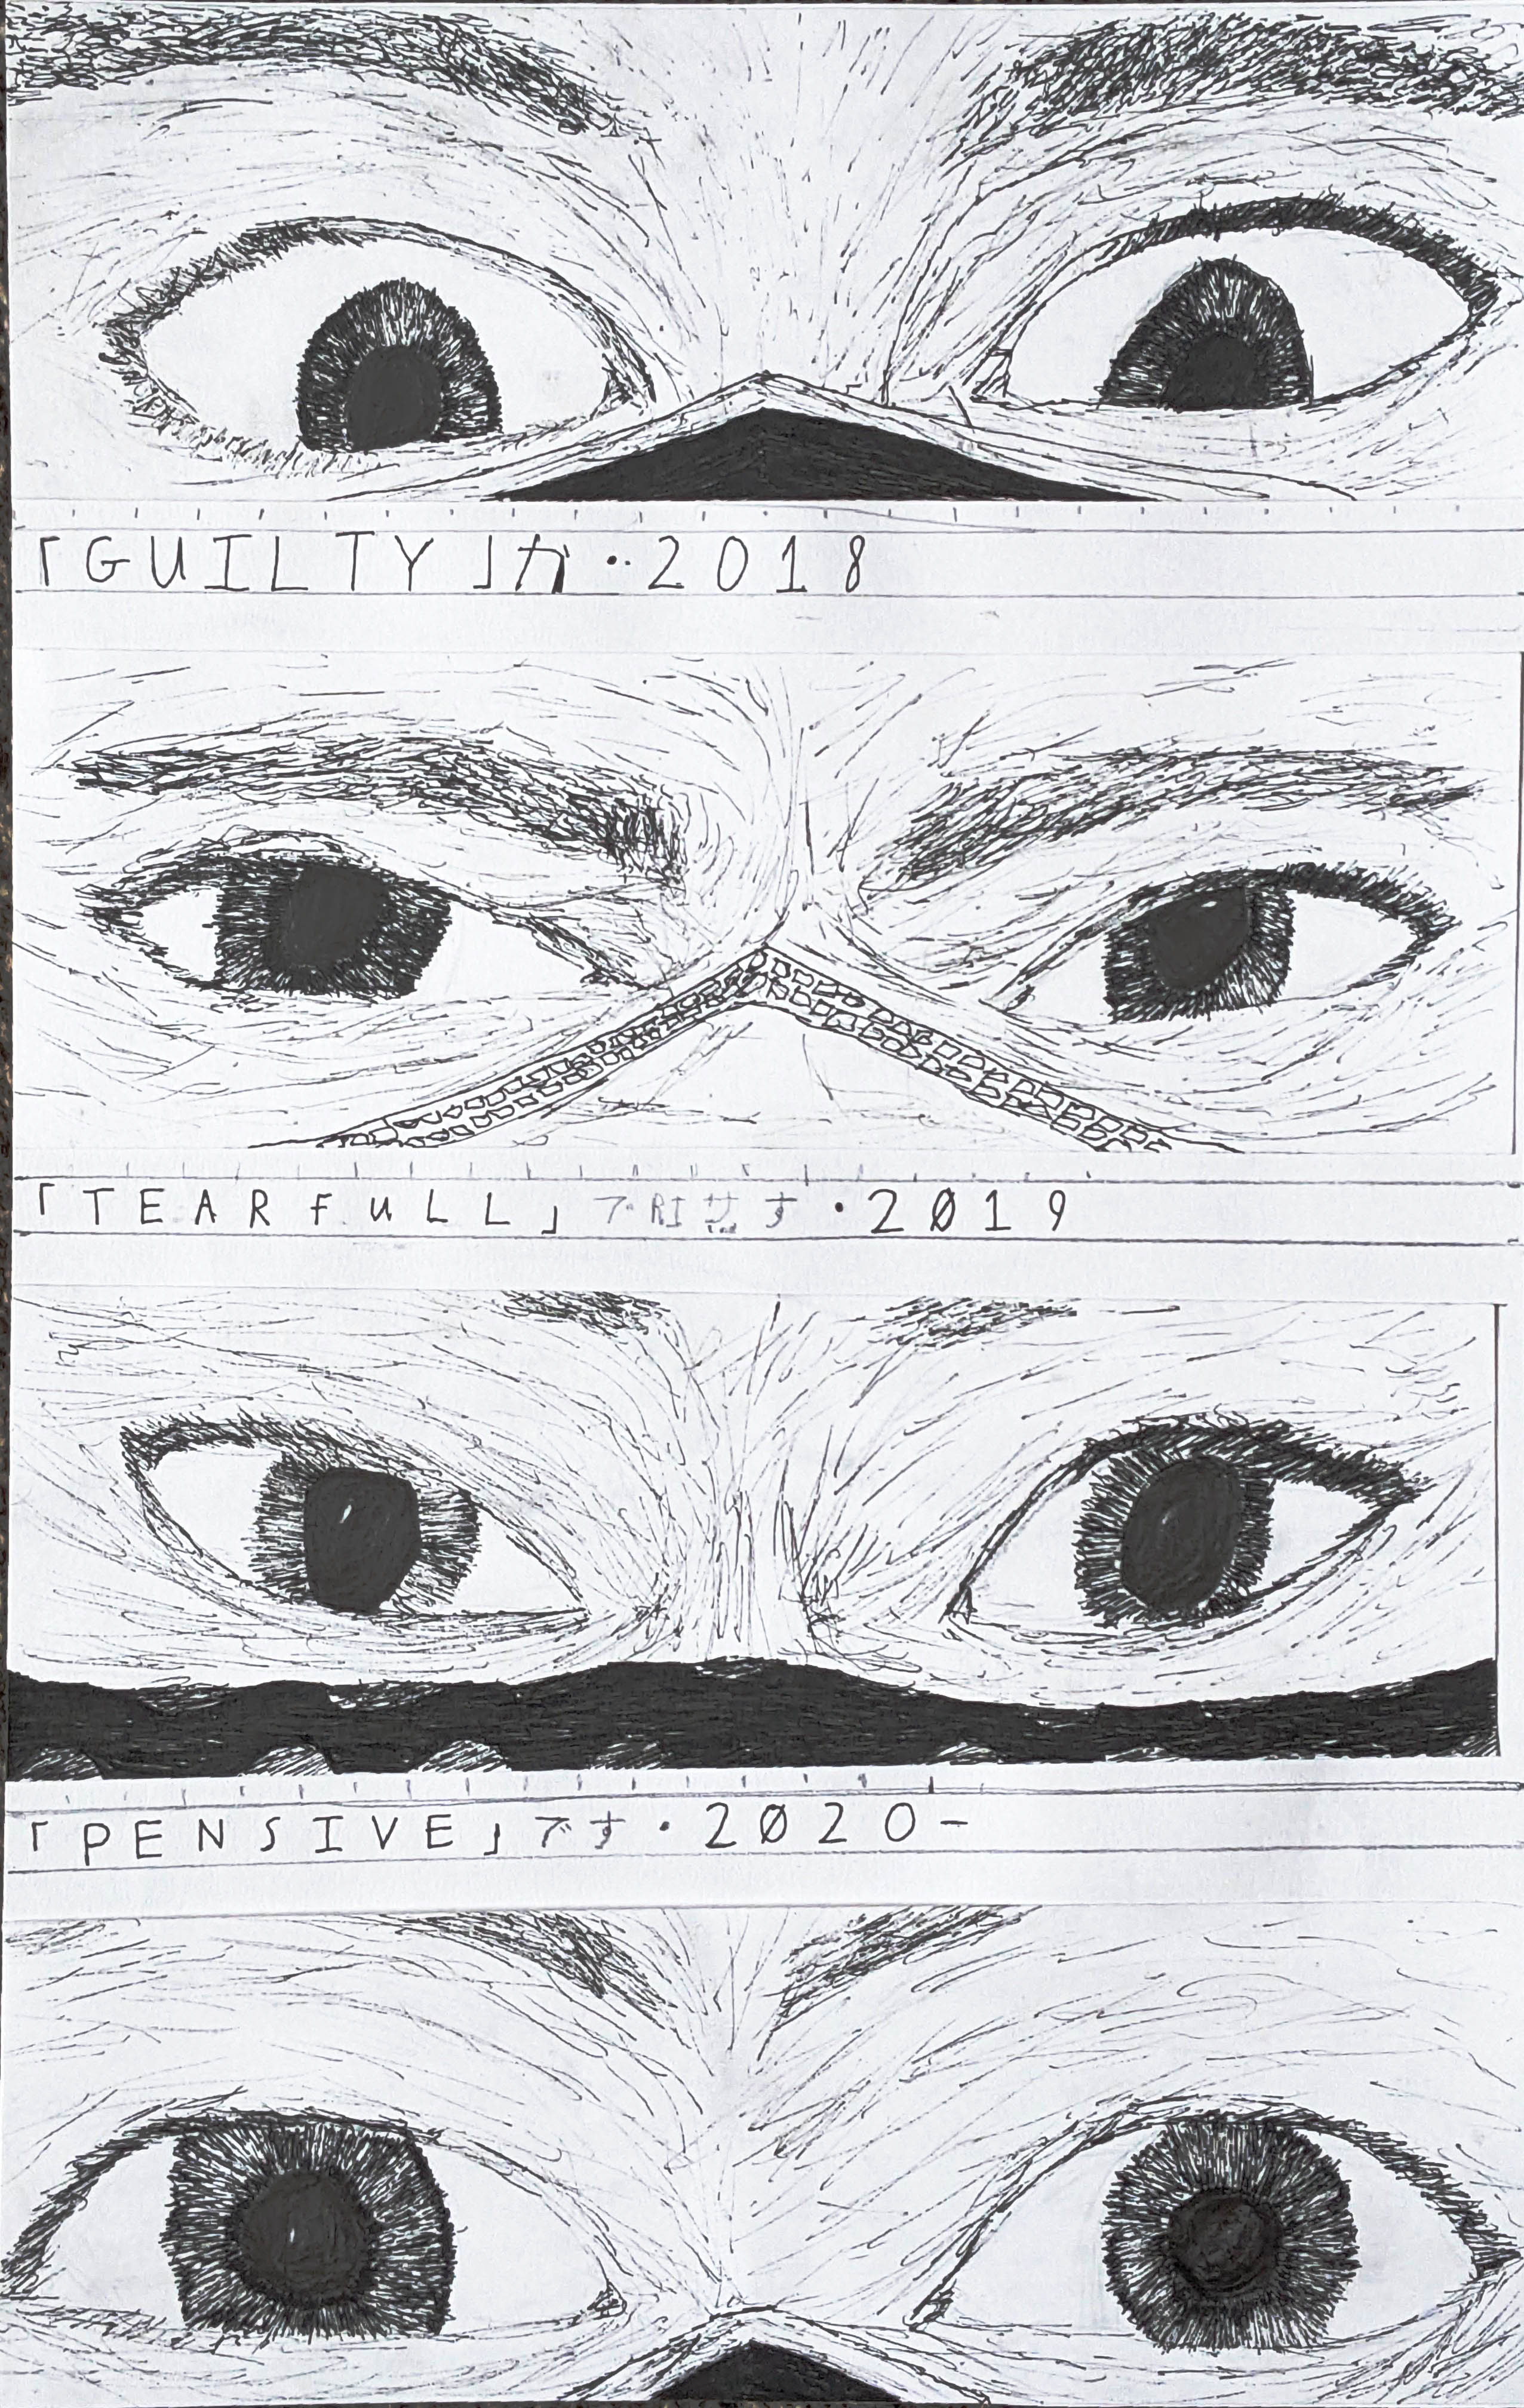 「GUILTY」か・2018
「TEARFULL」 ・2019
「PENSIVE」です・2020-